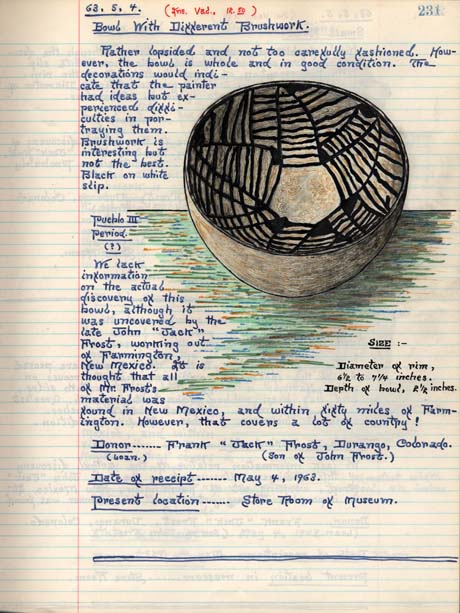 63. 5. 4.
231
Bowl With Different Brushwork.
Rather lopsided and not too carefully fashioned. How-
ever, the bowl is whole and in good condition. The
decorations would indi-
cate that the painter
had ideas but ex-
perienced diffi-
culties in por-
traying them.
Brushwork is
interesting but
not the best.
Black on white
slip.
Pueblo III
Period.
(?)
We lack
information
on the actual
discovery of this
bowl, although it
was uncovered by the
late John "Jack"
Frost, working out
of Farmington,
New Mexico. It is
thought that all
of Mr. Frost's
material was
found in New Mexico, and within sixty miles of Farm-
ington. However, that covers a lot of country!
Size :-
Diameter of rim,
6½ to 7¼ inches.
Depth of bowl, 2½ inches.
Donor....... Frank "Jack" Frost, Durango, Colorado.
(Loan.) (Son of John Frost.)
Date of receipt....... May 4, 1963.
Present location...... Store Room of Museum.